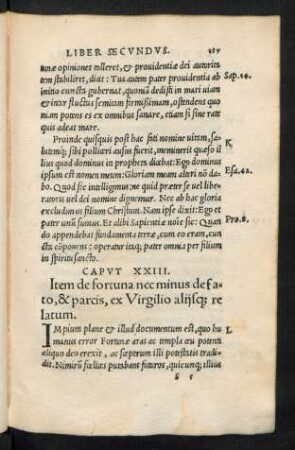 LIBER SECVNDVS.
tunæ opiniones tolleret, & prouidentiæ dei autorita
tem stabiliret, dicit: Tua autem pater prouidentia ab
initio cuncta gubernat, quoniã dedisti in mari uiam
& inter fluctus semitam firmissimam, ostendens quo
niam potens es ex omnibus sanare, etiam si sine rate
quis adeat mare.
Sap.14.
Proinde quisquis post hæc fati nomine uitem, sa-
lutemq; sibi polliceri ausus fuerit, meminerit quæso il
lius quod dominus in prophetis dicebat: Ego dominus
ipsum est nomen meum: Gloriam meam alteri nõ da-
bo. Quod sic intelligimus: ne quid præter se uel libe-
ratorem uel dei nomine dignemur. Nec ab hac gloria
excludimus filium Christum. Nam ipse dixit: Ego et
pater unũ sumus. Et alibi Sapientiæ uoce sic: Quan
do appendebat fundamenta terræ, cum eo eram, cun
cta cõponens: operatur itaq; pater omnia per filium
in spiritu sancto.
K
Esa.42.
Pro.8.
CAPVT XXIII.
Item de fortuna nec minus de fa
to, & parcis, ex Virgilio alijsq; re
latum.
IMpium plane & illud documentum est, quo hu
manus error Fortunæ aras ac templa ceu potenti
alicui deo erexit, ac sceptrum illi potestatis tradi-
dit. Nimirũ fœlices putabant futuros, quicunq; illius
L
S 1